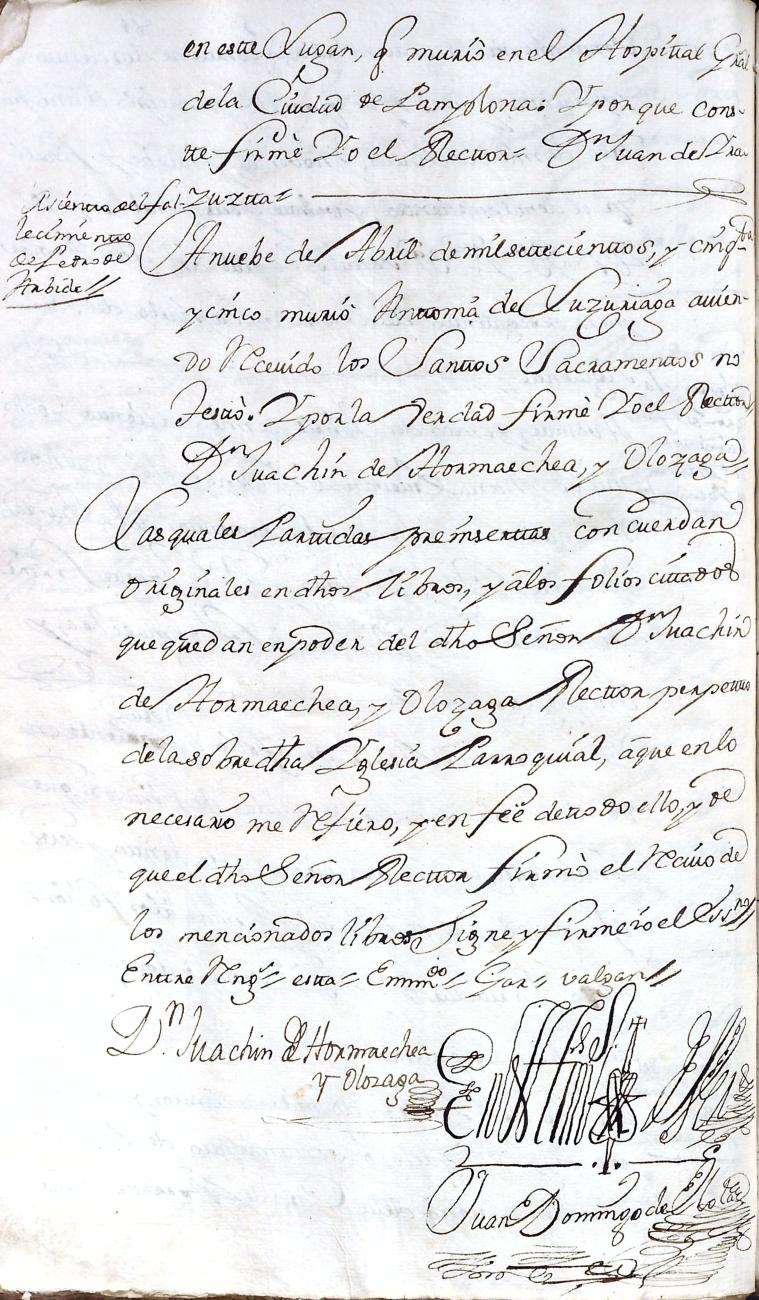 en este Lugar, q murio en el Hospittal Gral
dela Ciudad de Pamplona: Y porque cons-
tte firmè Yo el Recttor= Dn Juan de Yra
zuztta=
Asientto del fa-
lecimientto
de Pedro de
Arbide
A nuebe de Abril de mil settecienttos, y cinqta
y cinco murió Anttonia de Luzuriaga avien-
do Rceuido los Santtos Sacramenttos no
Testtò. Y por la Verdad firmè Yo el Recttor
Dn Juachin de Hormaechea, y Olozaga
Las quales Parttidas preinserttas concuerdan
originales en dhos libros, y a los folios cittados
que quedan en poder del dho Señor Dn Juachin
de Hormaechea, y Olozaga Recttor perpettuo
de la sobre dha Yglesia Parroquial, a que en lo
necesario me Rfiero, y en feè de todo ello, y de
que el dho Señor Recttor firmò el Rcivo de
los mencionados libros Signe y firme io el Essno
Enttre Rngs= estta= Emmdo= Gar= valgan
Dn Juachin de Hormaechea
y Olozaga
En ttestt
Juan Domingo de